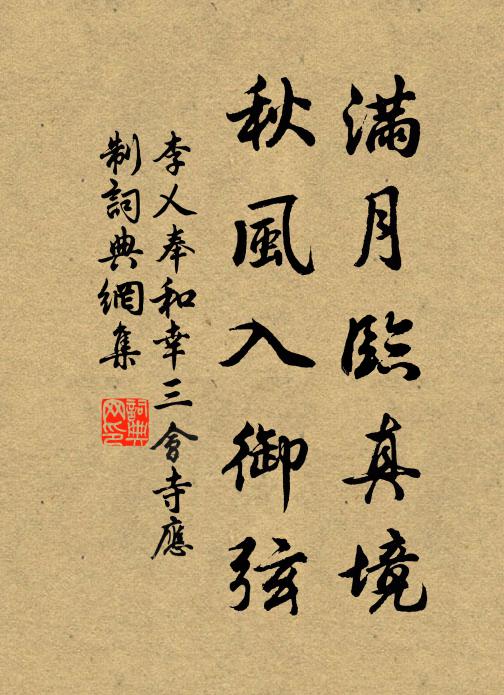 滿月臨真境
秋風入御弦
李乂奉和幸三會寺應
制詞典網集
詞典
网印